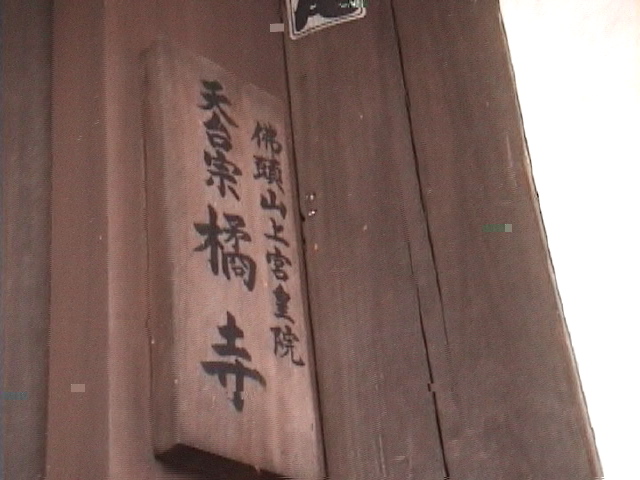 佛頭山上宮皇院
天台宗橘寺